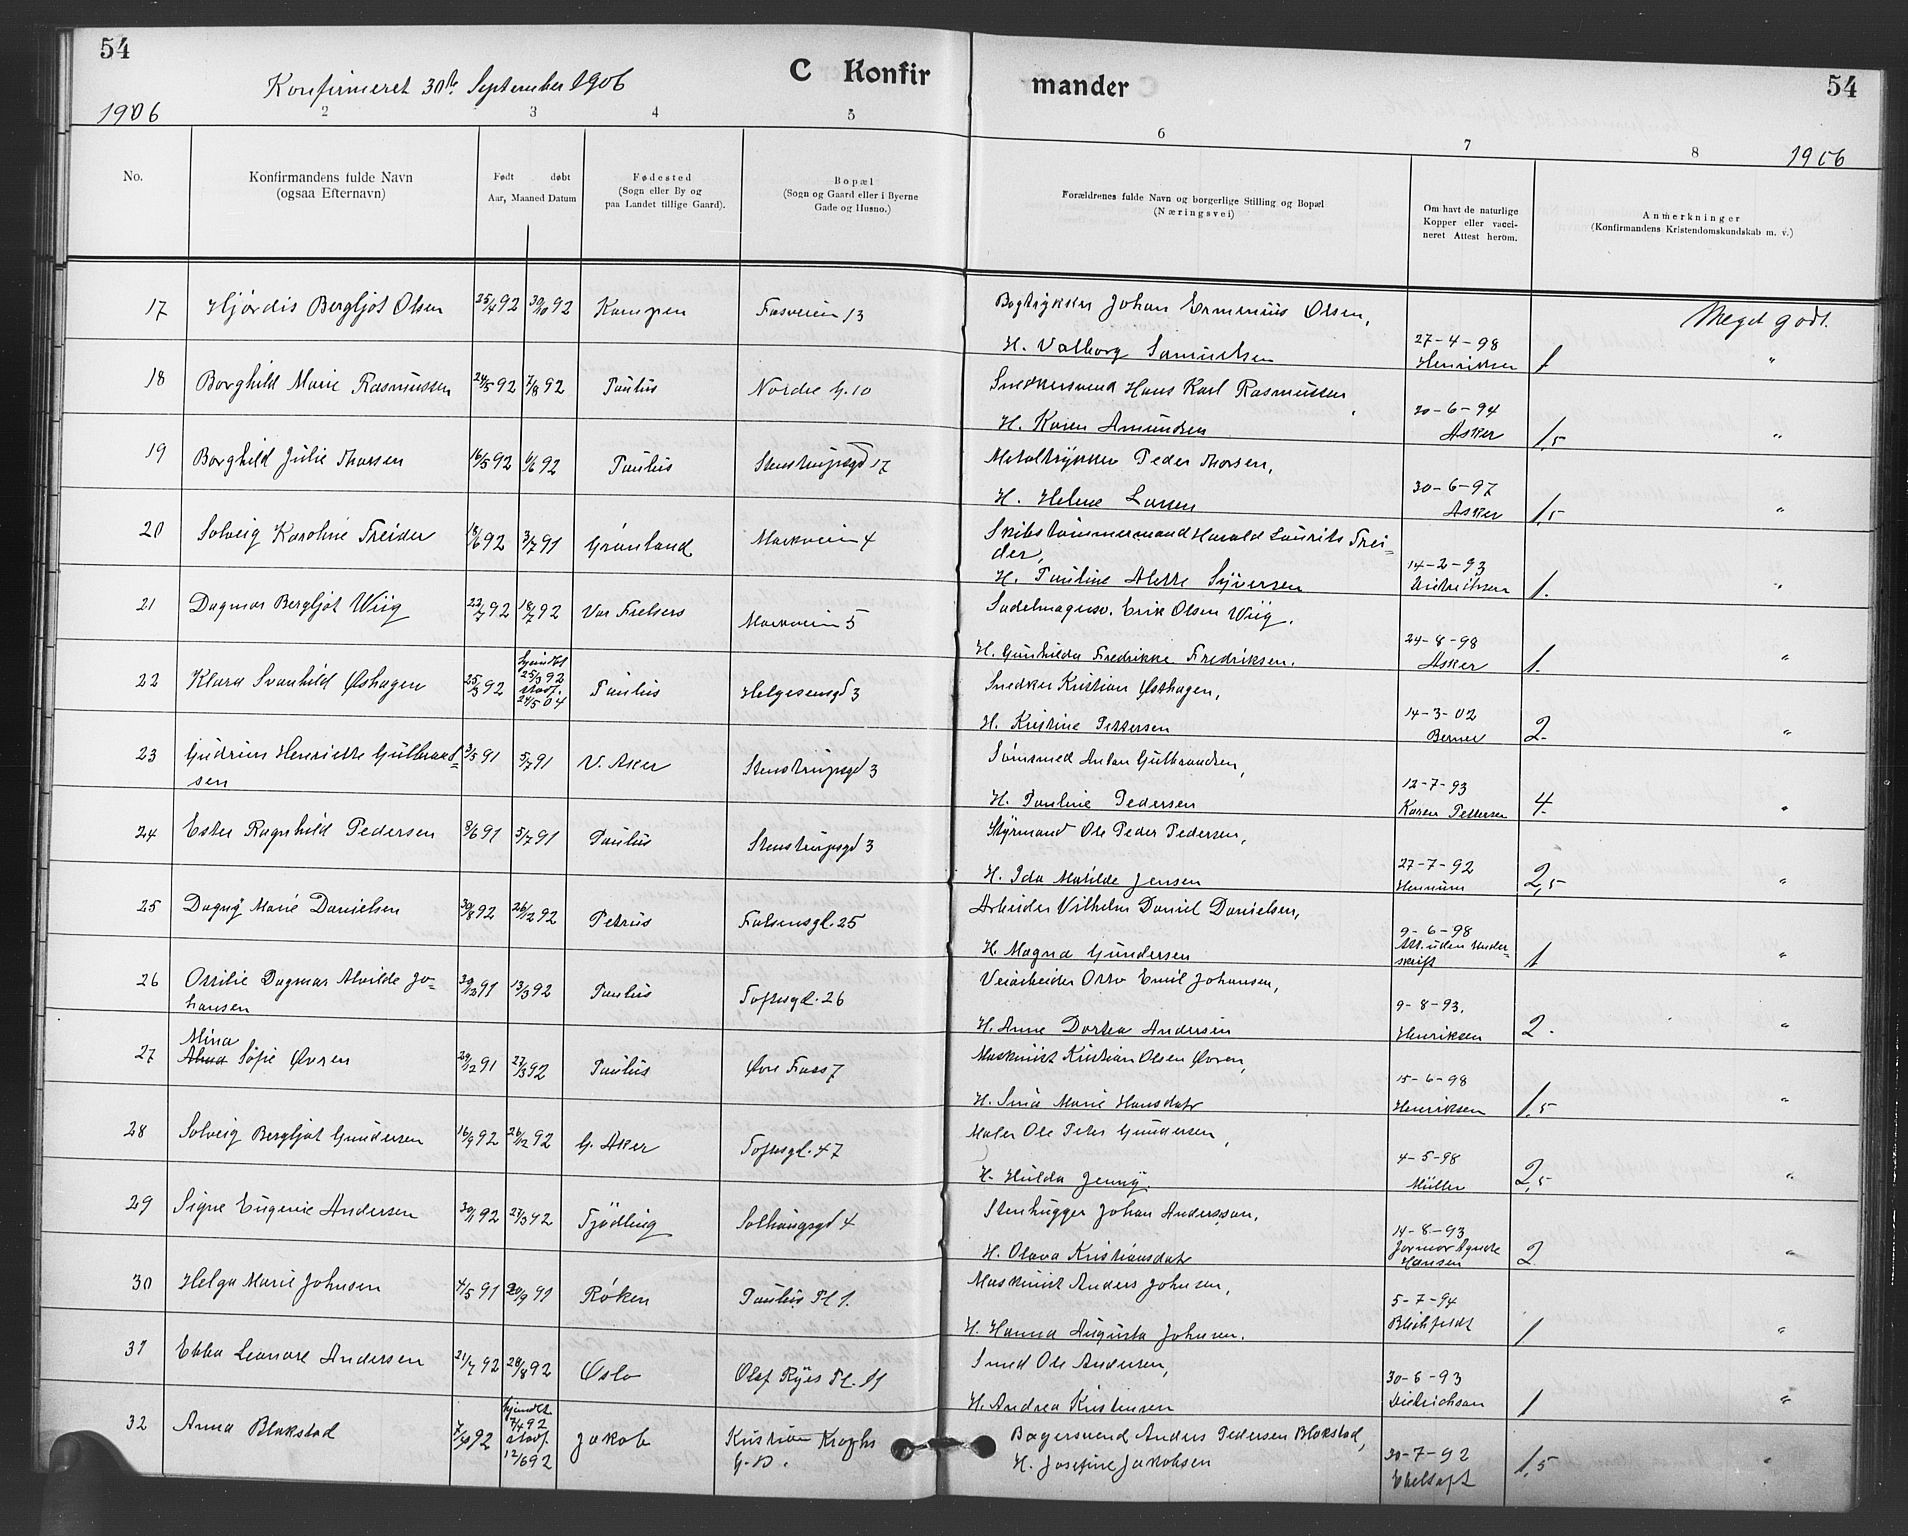 54
C Konfir
mander
54
Konfirmeret 30te September 1906
1906
2
3
4
5
6
7
8
1906
No.
Konfirmandens fulde Navn
(ogsaa Efternavn)
Født døbt
Aar, Maaned Datum
Fødested
(Sogn eller By og
paa Landet tillige Gaard).
Bopæl
(Sogn og Gaard eller i Byerne
Gade og Husno.)
Forældrenes fulde Navn og borgerlige Stilling og Bopæl
(Næringsvei)
Om havt de naturlige
Kopper eller vacci-
neret Attest herom.
Anmerkninger
(Konfirmandens Kristendomskundskab m. v.)
17 Hjørdis Bergljot Olsen 25/4 92 30/10 92 Kampen Fosveien 13 Bogtrykker Johan Olsen, Meget godt.
H. Valborg Samuelsen 27-4-98
Henriksen 1 "
18 Borghild Marie Rasmussen 24/5 92 7/8 92 Paulus Nordre G. 10 Snedkersvend Hans Karl Rasmussen,
H. Karen Amundsen 20-6-94
Asker 1,5 "
19 Borghild Julie Thorsen 16/5 92 6/6 92 Paulus Stenstrupsgd 17 Metaltrykker Peder Thorsen,
H. Helene Larsen 30-6-97
Asker 1,5 "
20 Solveig Karoline Treider 18/6 92 3/7 91 Grønland Markveien 4 Skibstømmermand Harald Laurits Trei-
der,
H. Pauline Alette Syversen 14-2-93
1. "
21 Dagmar Bergljot Wiig 22/7 92 18/7 92 Vor Frelsers Markveien 5 Sadelmagersv. Erik Olsen Wiig.
H. Gunhilda Fredrikke Fredriksen. 24-8-98
Asker 1. "
22 Klara Svanhild Østhagen 25/3 92 hjemdbt
25/3 92
stadf.
24/5 04 Paulus Helgesensgd 3 Snedker Kristian Østhagen,
H. Kristine Pettersen 14-3-02
Berner 2. "
23 Gudrun Henriette Gulbrand-
sen 3/5 91 5/7 91 V. Aker Stenstrupsgd 3 Sømsmed Anton Gulbrandsen,
H. Pauline Pedersen 12-7-93
Karen Pettersen 4. "
24 Ester Ragnhild Pedersen 8/6 91 5/7 91 Paulus Stenstrupsgd 3 Styrmand Ole Peder Pedersen,
H. Ida Matilde Jensen 27-7-92
2,5 "
25 Dagny Marie Danielsen 30/8 92 26/12 92 Petrus Falsensgd. 25 Arbeider Vilhelm Daniel Danielsen,
H. Magna Gundersen 9-6-98
Att. uden Under-
skrift 1 "
26 Ottilie Dagmar Alvilde Jo-
hansen 30/12 91 13/3 92 Paulus Toftesgd. 26 Veiarbeider Otto Emil Johansen,
H. Anne Dortea Andersen 9-8-93.
Henriksen 2. "
27 Mina
Sofie Øvren 29/12 91 27/3 92 Paulus Øvre Foss 7 Maskinist Kristian Olsen Øvren,
H. Marie Hansdatr 15-6-98
Henriksen 1,5 "
28 Solveig Bergljot Gundersen 16/9 92 26/12 92 G. Aker Toftesgd. 47 Maler Ole Peter Gundersen,
H. Hulda Jenny. 4-5-98
Müller 2,5 "
29 Signe Eugenie Andersen 30/1 92 27/3 92 Tjødling Solhaugsgd 4 Stenhugger Johan Andersson,
H. Olava Kristiansdatr 14-8-93
Jormor Agnete
Hansen 2. "
30 Helga Marie Johnsen 4/5 91 20/9 91 Røken Paulus Pl 1. Maskinist Anders Johnsen,
H. Hanna Augusta Johnsen. 5-7-94
Blichfeldt 1 "
31 Ebba Leonore Andersen 21/7 92 28/8 92 Oslo Olaf Ryes Pl. 11 Smed Ole Andersen,
H. Andrea Kristensen 30-6-93
Dietrichson 1 "
32 Anna Blakstad 7/4 92 hjemdbt
7/4 92
stadf.
12/6 92 Jakob Kristian Kroghs
G. 10. Bagersvend Anders Pedersen Blakstad,
H. Josefine Jakobsen 20-7-92
Ebeltoft 1,5 "